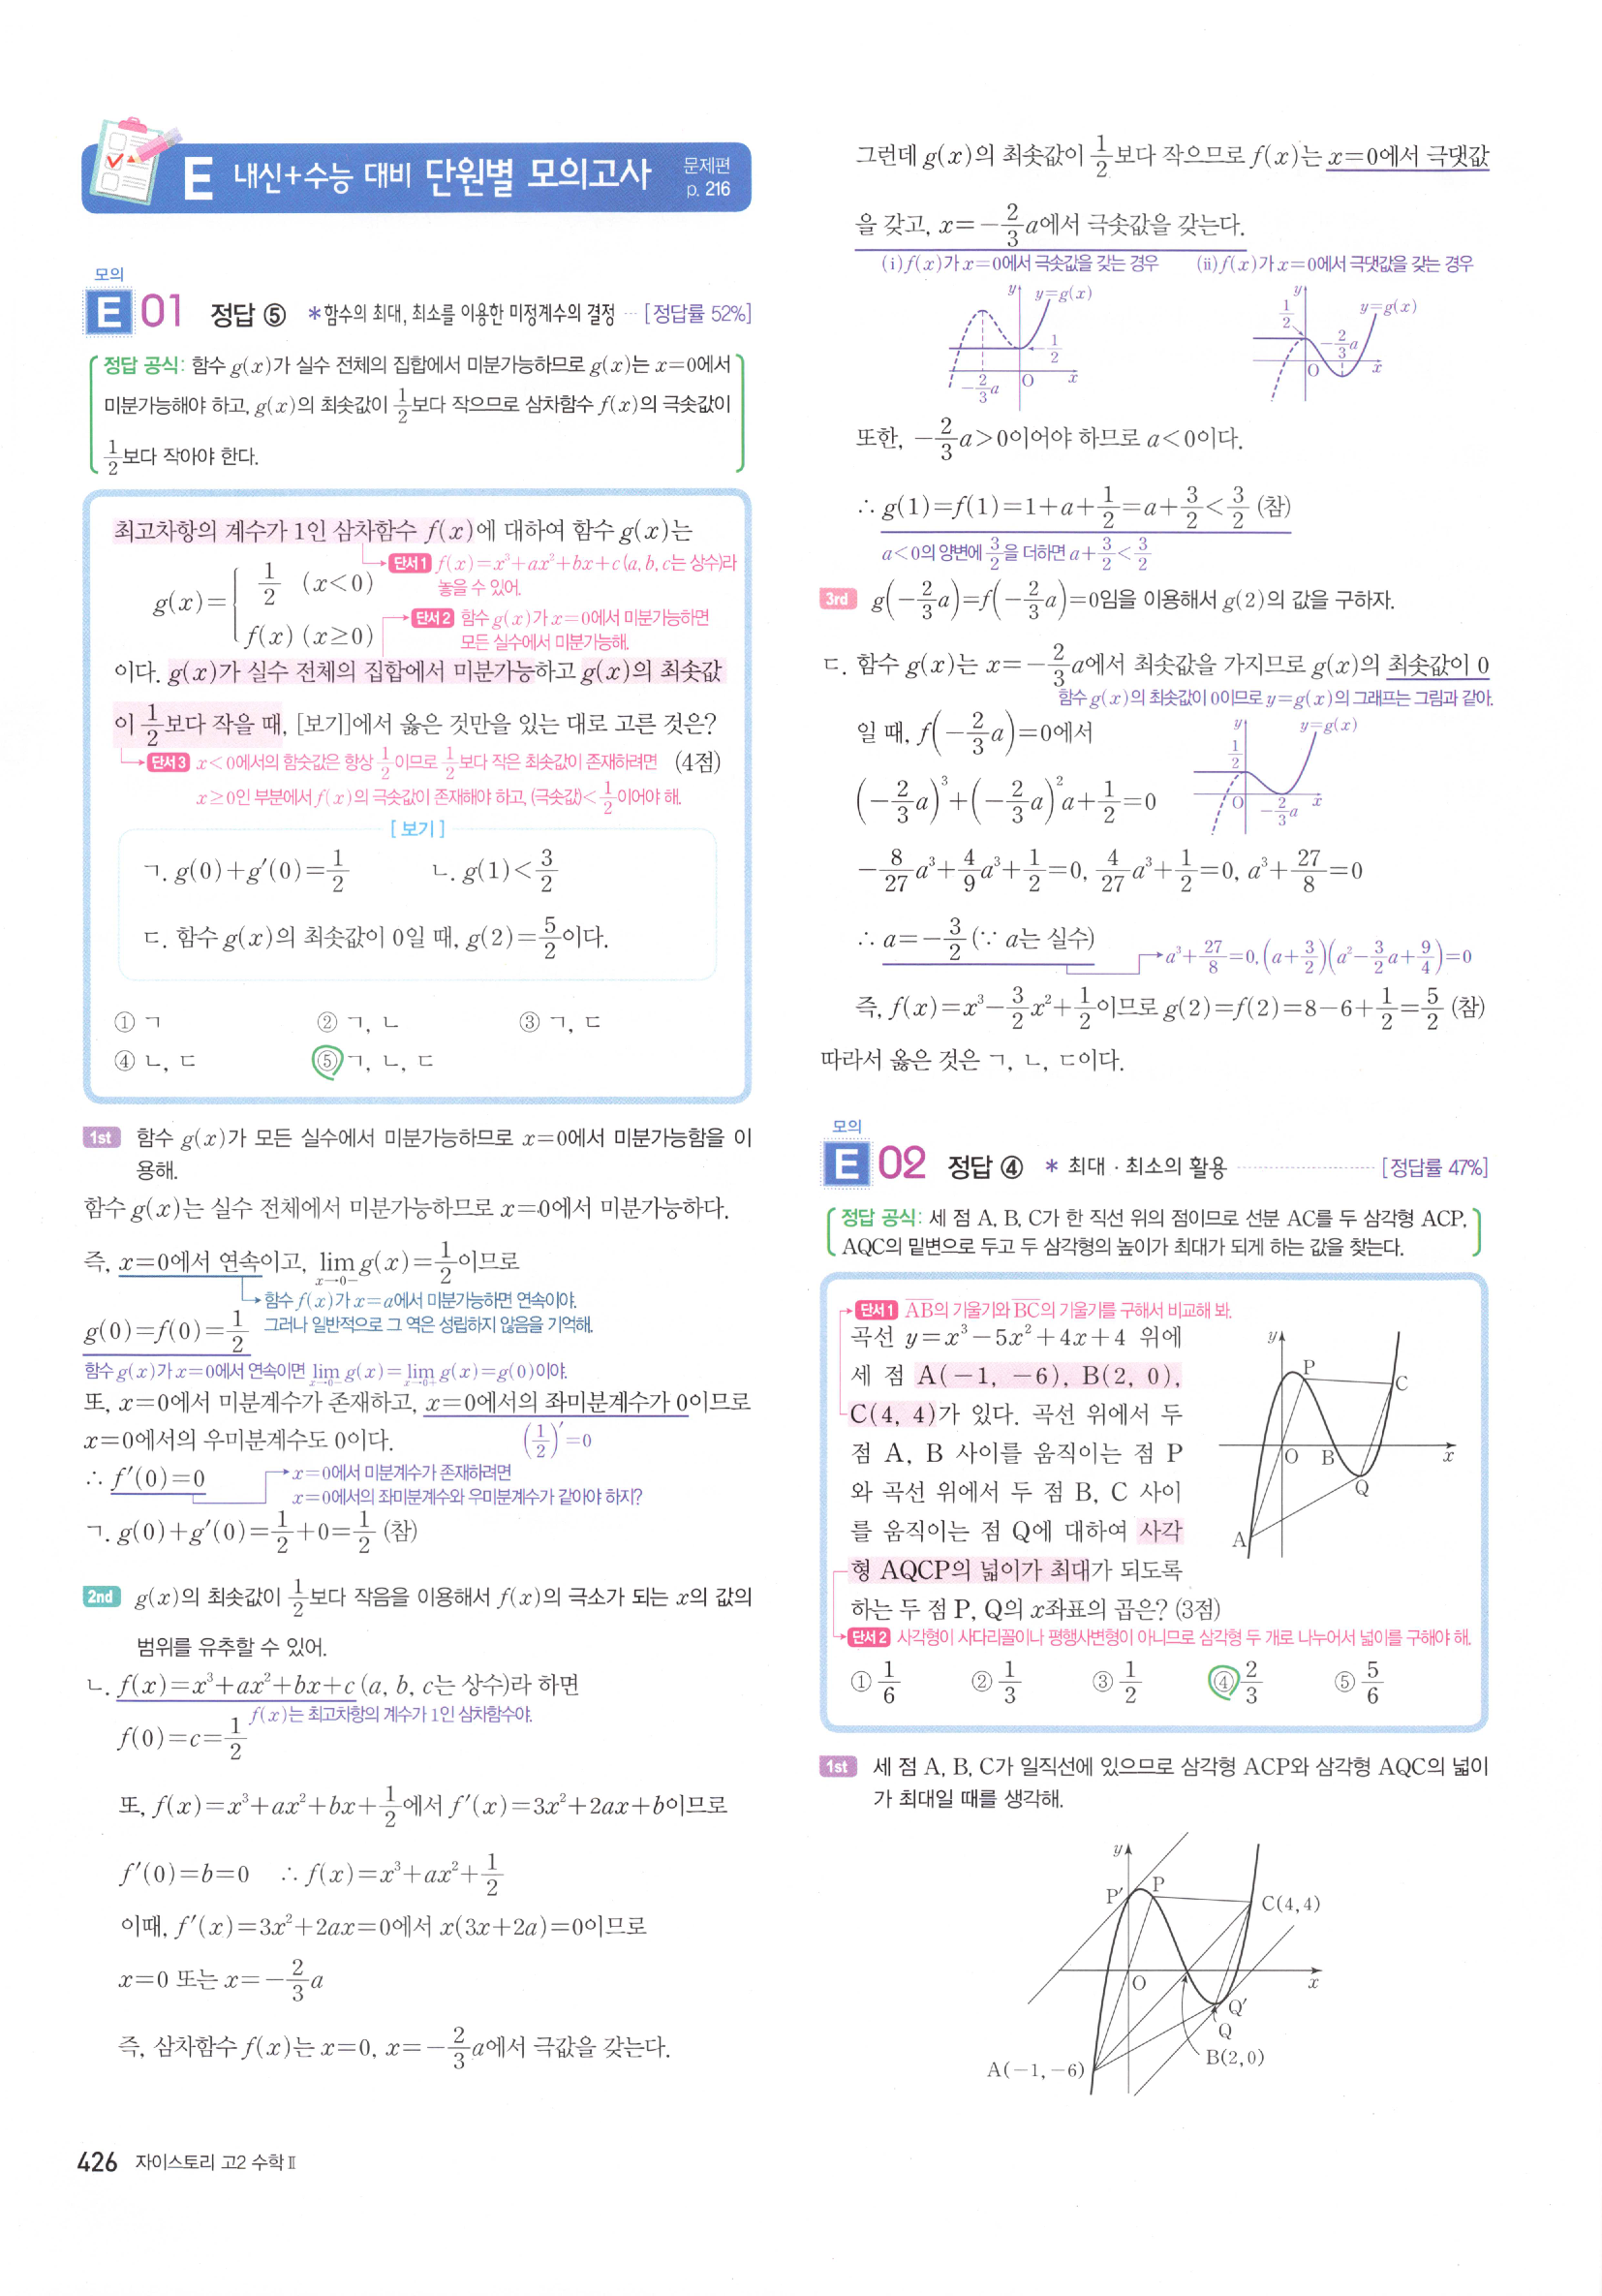 E 내신+수능 대비 단원별 모의고사 문제편 p. 216
모의
E 01 정답 ⑤ *함수의 최대, 최소를 이용한 미정계수의 결정 ··· [정답률 52%]
정답 공식: 함수 g(x)가 실수 전체의 집합에서 미분가능하므로 g(x)는 x=0에서
미분가능해야 하고, g(x)의 최솟값이 1/2보다 작으므로 삼차함수 f(x)의 극솟값이
1/2보다 작아야 한다.
최고차항의 계수가 1인 삼차함수 f(x)에 대하여 함수 g(x)는
단서1 f(x)=x³+ax²+bx+c (a, b, c는 상수)라
놓을 수 있어.
g(x)={ 1/2 (x<0)
f(x) (x≥0)
단서2 함수 g(x)가 x=0에서 미분가능하면
모든 실수에서 미분가능해.
이다. g(x)가 실수 전체의 집합에서 미분가능하고 g(x)의 최솟값
이 1/2보다 작을 때, [보기]에서 옳은 것만을 있는 대로 고른 것은?
단서3 x<0에서의 함숫값은 항상 1/2이므로 1/2보다 작은 최솟값이 존재하려면 (4점)
x≥0인 부분에서 f(x)의 극솟값이 존재해야 하고, (극솟값)<1/2이어야 해.
[보기]
ㄱ. g(0)+g′(0)=1/2 ㄴ. g(1)<3/2
ㄷ. 함수 g(x)의 최솟값이 0일 때, g(2)=5/2이다.
① ㄱ ② ㄱ, ㄴ ③ ㄱ, ㄷ
④ ㄴ, ㄷ ⑤ ㄱ, ㄴ, ㄷ
1st 함수 g(x)가 모든 실수에서 미분가능하므로 x=0에서 미분가능함을 이
용해.
함수 g(x)는 실수 전체에서 미분가능하므로 x=0에서 미분가능하다.
즉, x=0에서 연속이고, lim x→0− g(x)=1/2이므로
함수 f(x)가 x=a에서 미분가능하면 연속이야.
그러나 일반적으로 그 역은 성립하지 않음을 기억해.
g(0)=f(0)=1/2
함수 g(x)가 x=0에서 연속이면 lim x→0− g(x)=lim x→0+ g(x)=g(0)이야.
또, x=0에서 미분계수가 존재하고, x=0에서의 좌미분계수가 0이므로
x=0에서의 우미분계수도 0이다. (1/2)′=0
∴ f′(0)=0 x=0에서 미분계수가 존재하려면
x=0에서의 좌미분계수와 우미분계수가 같아야 하지?
ㄱ. g(0)+g′(0)=1/2+0=1/2 (참)
2nd g(x)의 최솟값이 1/2보다 작음을 이용해서 f(x)의 극소가 되는 x의 값의
범위를 유추할 수 있어.
ㄴ. f(x)=x³+ax²+bx+c (a, b, c는 상수)라 하면
f(x)는 최고차항의 계수가 1인 삼차함수야.
f(0)=c=1/2
또, f(x)=x³+ax²+bx+1/2에서 f′(x)=3x²+2ax+b이므로
f′(0)=b=0 ∴ f(x)=x³+ax²+1/2
이때, f′(x)=3x²+2ax=0에서 x(3x+2a)=0이므로
x=0 또는 x=−2/3a
즉, 삼차함수 f(x)는 x=0, x=−2/3a에서 극값을 갖는다.
426 자이스토리 고2 수학Ⅱ
그런데 g(x)의 최솟값이 1/2보다 작으므로 f(x)는 x=0에서 극댓값
을 갖고, x=−2/3a에서 극솟값을 갖는다.
(i) f(x)가 x=0에서 극솟값을 갖는 경우 (ii) f(x)가 x=0에서 극댓값을 갖는 경우
y y=g(x) 1/2 −2/3a O x
y 1/2 y=g(x) −2/3a O x
또한, −2/3a>0이어야 하므로 a<0이다.
∴ g(1)=f(1)=1+a+1/2=a+3/2<3/2 (참)
a<0의 양변에 3/2을 더하면 a+3/2<3/2
3rd g(−2/3a)=f(−2/3a)=0임을 이용해서 g(2)의 값을 구하자.
ㄷ. 함수 g(x)는 x=−2/3a에서 최솟값을 가지므로 g(x)의 최솟값이 0
함수 g(x)의 최솟값이 0이므로 y=g(x)의 그래프는 그림과 같아.
일 때, f(−2/3a)=0에서
y y=g(x) 1/2 O −2/3a x
(−2/3a)³+(−2/3a)²a+1/2=0
−8/27a³+4/9a³+1/2=0, 4/27a³+1/2=0, a³+27/8=0
∴ a=−3/2 (∵ a는 실수)
a³+27/8=0, (a+3/2)(a²−3/2a+9/4)=0
즉, f(x)=x³−3/2x²+1/2이므로 g(2)=f(2)=8−6+1/2=5/2 (참)
따라서 옳은 것은 ㄱ, ㄴ, ㄷ이다.
모의
E 02 정답 ④ * 최대·최소의 활용 ··· [정답률 47%]
정답 공식: 세 점 A, B, C가 한 직선 위의 점이므로 선분 AC를 두 삼각형 ACP,
AQC의 밑변으로 두고 두 삼각형의 높이가 최대가 되게 하는 값을 찾는다.
단서1 AB의 기울기와 BC의 기울기를 구해서 비교해 봐.
곡선 y=x³−5x²+4x+4 위에
세 점 A(−1, −6), B(2, 0),
C(4, 4)가 있다. 곡선 위에서 두
점 A, B 사이를 움직이는 점 P
와 곡선 위에서 두 점 B, C 사이
를 움직이는 점 Q에 대하여 사각
형 AQCP의 넓이가 최대가 되도록
하는 두 점 P, Q의 x좌표의 곱은? (3점)
y P C O B x Q A
단서2 사각형이 사다리꼴이나 평행사변형이 아니므로 삼각형 두 개로 나누어서 넓이를 구해야 해.
① 1/6 ② 1/3 ③ 1/2 ④ 2/3 ⑤ 5/6
1st 세 점 A, B, C가 일직선에 있으므로 삼각형 ACP와 삼각형 AQC의 넓이
가 최대일 때를 생각해.
y P′ P C(4,4)
O x
Q′
Q
B(2,0)
A(−1,−6)